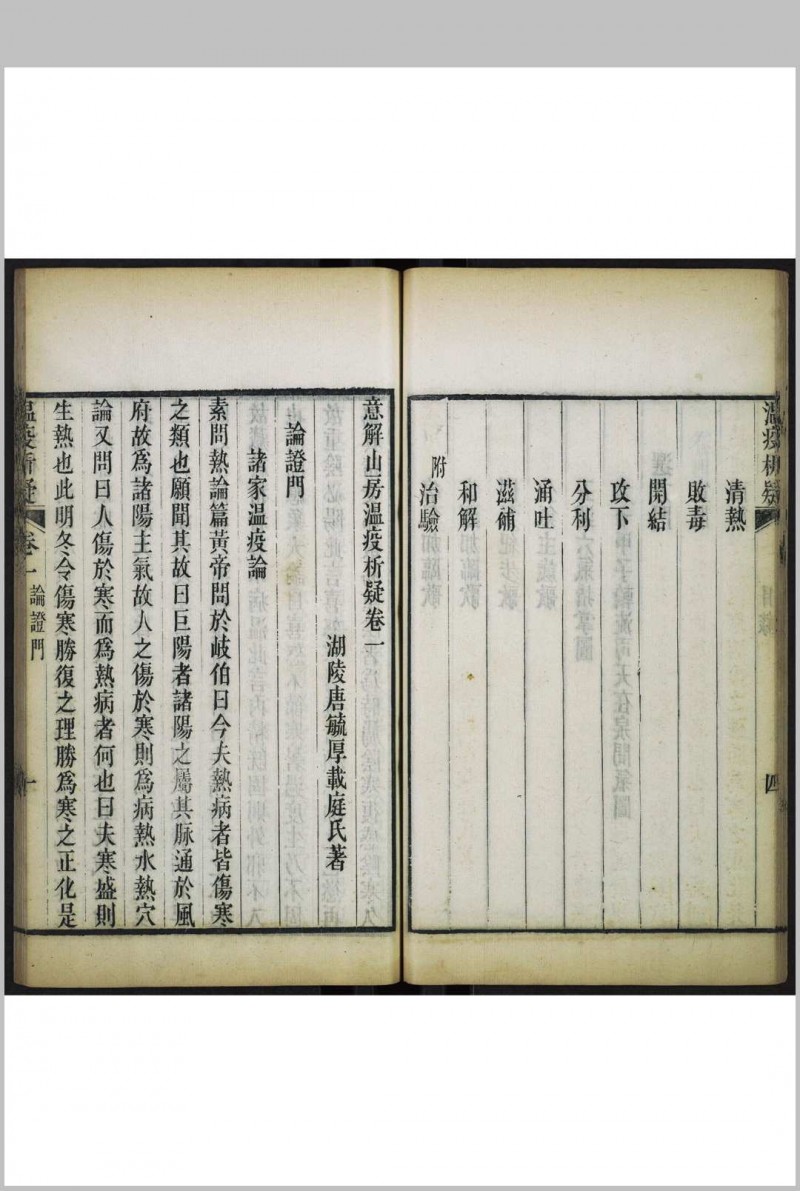 温疫析疑
四
清熱
敗毒
開結
攻下
分利
涌吐
滋補
和解
附治驗
意解山房温疫析疑卷一
湖陵唐毓厚載庭氏著
論證門
諸家温疫論
素問熱論篇黃帝問於岐伯曰今夫熱病者皆傷寒
之類也願聞其故曰巨陽者諸陽之屬其脉通於風
府故爲諸陽主氣故人之傷於寒則爲病熱水熱穴
論又問曰人傷於寒而爲熱病者何也曰夫寒盛則
生熱也此明冬令傷寒勝復之理勝爲寒之正化是
温疫析疑
卷一
論證門
一